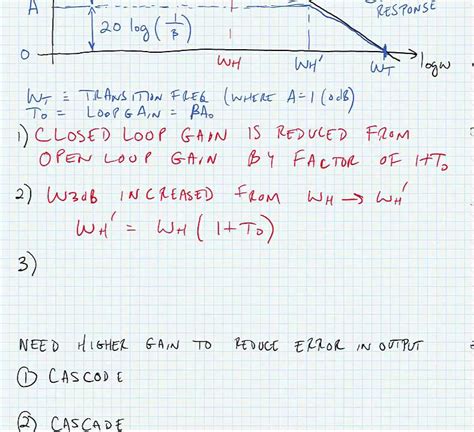 RESPONSE
A
20 log (1/B)
0
WH WH' WT log w
WT ≡ TRANSITION FREQ (WHERE A=1 (0dB)
To = LOOP GAIN = βAo
1) CLOSED LOOP GAIN IS REDUCED FROM
OPEN LOOP GAIN BY FACTOR OF 1+To
2) W3dB INCREASED FROM WH → WH'
WH' = WH (1+To)
3)
NEED HIGHER GAIN TO REDUCE ERROR IN OUTPUT
① CASCODE
② CASCADE